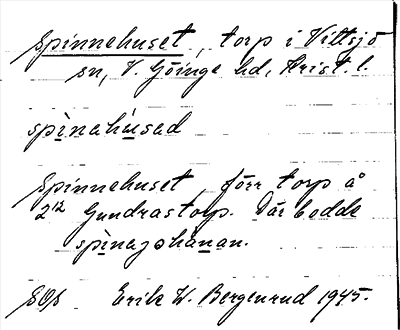 Spinnehuset, torp i Vittsjö
sn, V. Göinge hd, Krist. l.
spinahusad
Spinnehuset, förr torp å
2 12 Gundrastorp. Där bodde
spinagohånan.
Erik W. Bergenrud 1945.